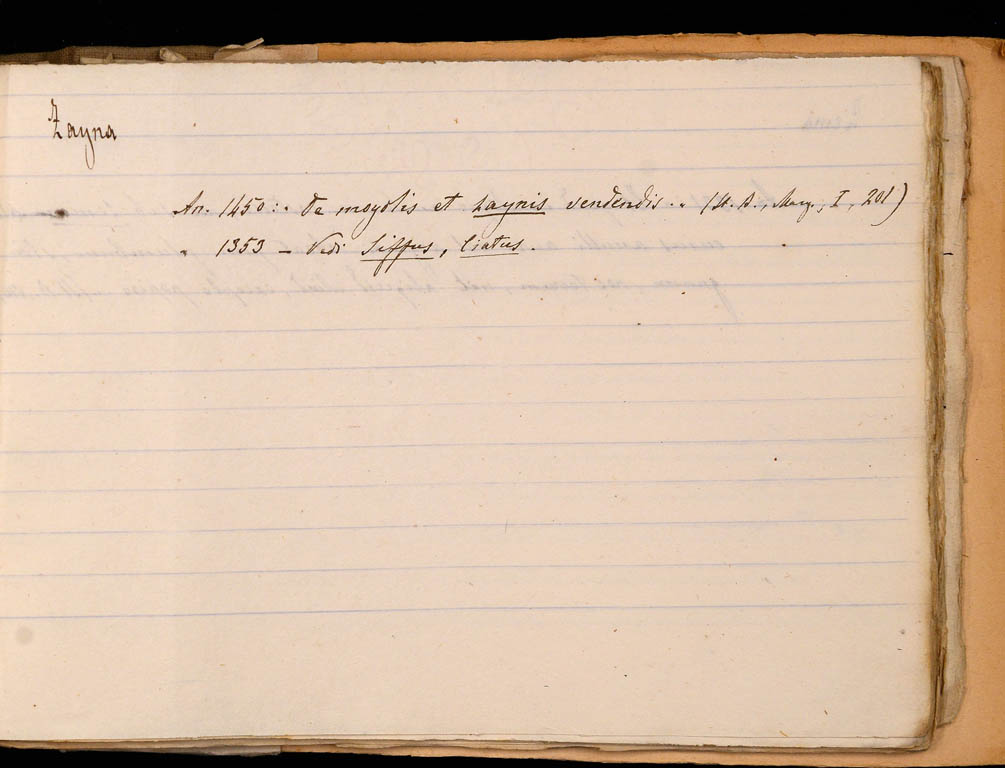 Zayna
An. 1450: " De moyolis et zaynis vendendis. " (A. B., Marg., I, 201)
" 1353 — Vedi Siffus, Ciatus.